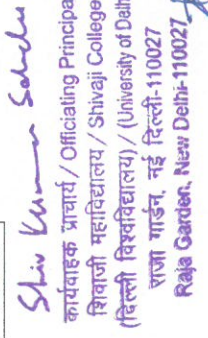 Shiv Kumar Sahdev
कार्यवाहक प्राचार्य / Officiating Principal
शिवाजी महाविद्यालय / Shivaji College
(दिल्ली विश्वविद्यालय) / (University of Delhi
राजा गार्डन, नई दिल्ली-110027
Raja Garden, New Delhi-110027